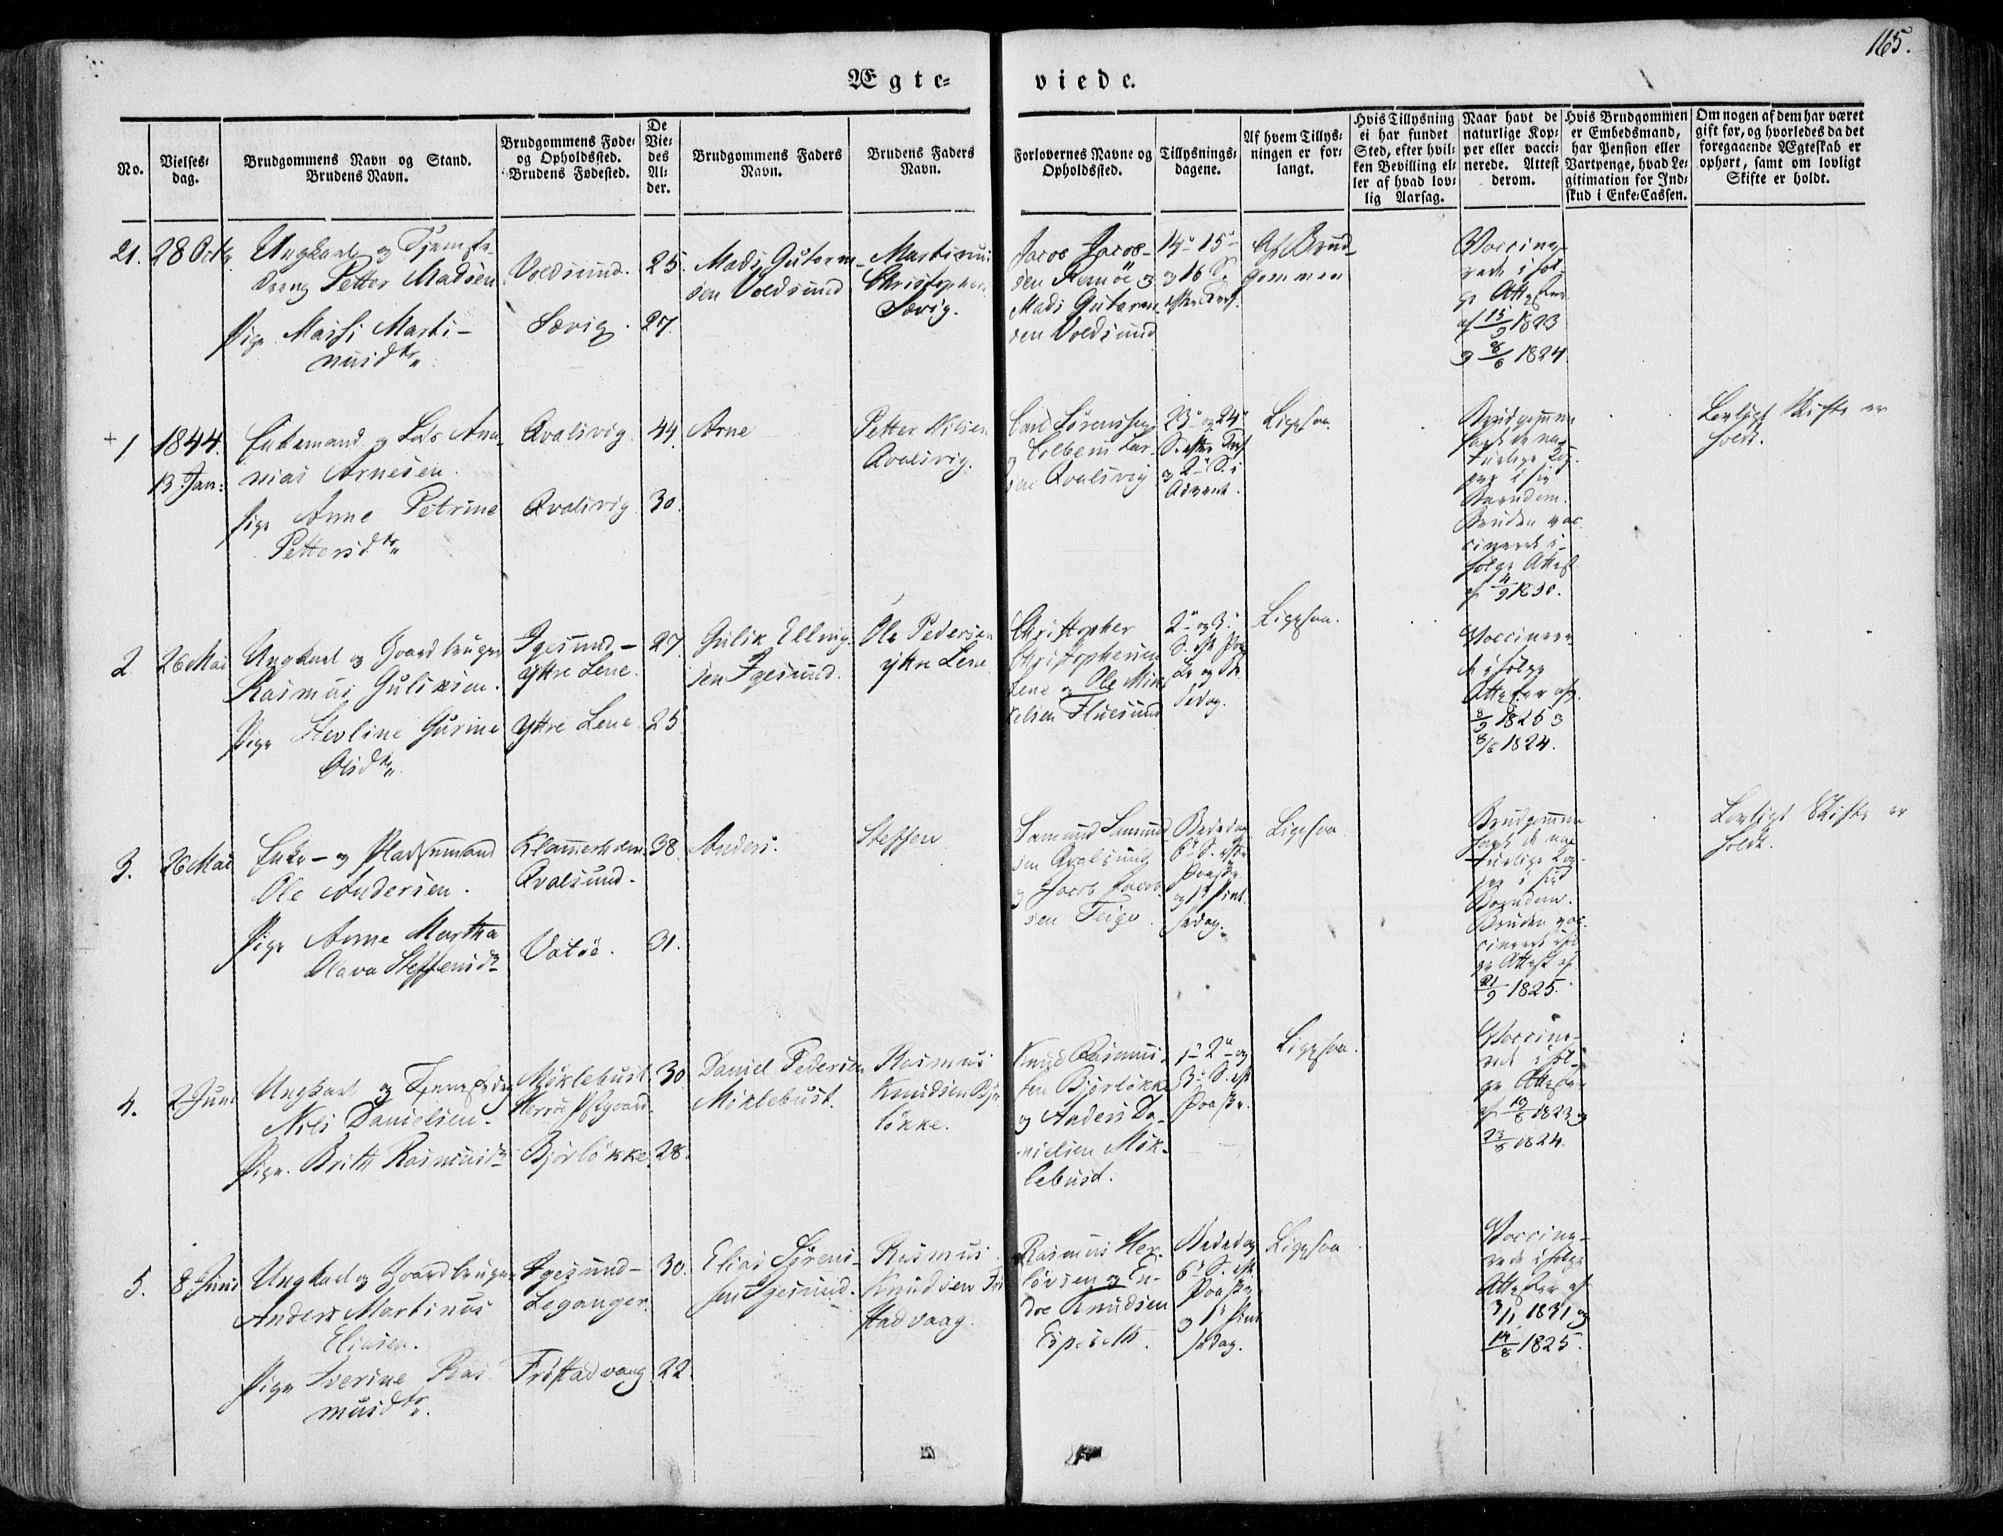 165.
Ægte=
viede.
No.
Vielses-
dag.
Brudgommens Navn og Stand.
Brudens Navn.
Brudgommens Føde-
og Opholdssted.
Brudens Fødested.
De
Vie-
des
Al-
der.
Brudgommens Faders
Navn.
Brudens Faders
Navn.
Forlovernes Navne og
Opholdssted.
Tillysnings-
dagene.
Af hvem Tillys-
ningen er for-
langt.
Hvis Tillysning
ei har fundet
Sted, efter hvil-
ken Bevilling el-
ler af hvad lov-
lig Aarsag.
Naar havt de
naturlige Kop-
per eller vacci-
nerede. Attest
derom.
Hvis Brudgommen
er Embedsmand,
har Pension eller
Vartpenge, hvad Le-
gitimation for Ind-
skud i Enke-Cassen.
Om nogen af dem har været
gift før, og hvorledes da det
foregaaende Ægteskab er
ophørt, samt om lovligt
Skifte er holdt.
21.
28 Octr
Ungkarl og Tjeneste
dreng Petter Madsen
Pige Massi Marti-
nusdtr
Voldsund.
Sævig.
25.
27.
Mads Gutorm-
sen Voldsund
Martinus
Christopher
Sævig.
Jacob Jacob-
sen Remöe og
Mads Gutorm-
sen Voldsund
14de 15de
og 16 S.
efter Tref.
Af Brud-
gommen
Vaccine-
rede iføl-
ge Attester
af 15/9 1823
og 8/6 1824
+ 1
1844.
13 Jan:
Enkemand og Lods Ana-
nias Arnesen.
Pige Anne Petrine
Pettersdtr
Qvalsvig
Qvalsvig
44.
30.
Arne
Petter Nilsen
Qvalsvig.
Carl Sørenssen
og Colbein Lar-
sen Qvalsvig
23de og 24de
S. efter Tref
og 2de S. i
Advent.
Ligesaa
Brudgommen
havt de na-
turlige Kop-
per i sin
Barndom.
Bruden vac-
cineret i-
følge Attest
af 4/9 1830.
Lovligt Skifte er
holdt.
2
26 Mai
Ungkarl og Gaardbruger
Rasmus Guliksen.
Pige Hevline Gurine
Olsdtr
Igesund-
Ytre Lene.
Ytre Lene
27.
25
Gulik Elling-
sen Igesund.
Ole Pedersen
ytre Lene
Christopher
Christophersen
Lene og Ole Mik-
kelsen Fluesund
2de og 3de
S. eft Paa
Ligesaa.
Vaccinere-
de ifølge
Attester af
8/9 1825 og
8/6 1824.
3.
26 Mai
Enke- og Pladsemand
Ole Andersen.
Pige Anne Martha
Olava Steffensdtr
Klammerholm
Qvalsund.
Vatöe.
38.
31.
Anders.
Steffen
Samund Samund
sen Qvalsund
og Jacob Jacob-
sen Teige.
Bededag
6te S. efter
Paaske
og 1ste Pint-
sedag.
Ligesaa.
Brudgommen
havt de na-
turlige Kop-
per i sin
Barndom.
Bruden vac-
cineret iføl-
ge Attest af
21/9 1825.
Lovligt Skifte er
holdt.
4.
2 Juni
Ungkarl og Tjenestedreng
Nils Danielsen.
Pige. Brith Rasmusdtr
Miklebust.
Herröe Pstgaard.
Bjørløkke.
30.
28.
Daniel Pedersen
Miklebust.
Rasmus
Knudsen Bjør
løkke.
Knud Rasmus-
sen Bjørløkke
og Anders Da-
nielsen Mik-
lebust.
1ste 2de og
3die S. eft
Paaske.
Ligesaa.
Vaccine-
rede iføl-
ge Attester
af 19/8 1823 og
23/8 1824.
5.
8 Juni
Ungkarl og Gaardbruger
Anders Martinus
Eliasen.
Pige Severine Ras-
musdtr.
Igesund-
Leganger.
Fristadvaag
30.
22.
Elias Sørens-
sen Igesund.
Rasmus
Knudsen Fri
stadvaag.
Rasmus Her-
løvsen og En-
dre Knudsen
Espeseth.
Bededag
6te S. eft
Paaske
og 1ste Pint
sedag.
Ligesaa
Vaccine-
rede ifølge
Attester af
3/1 1831 og
14/8 1825.